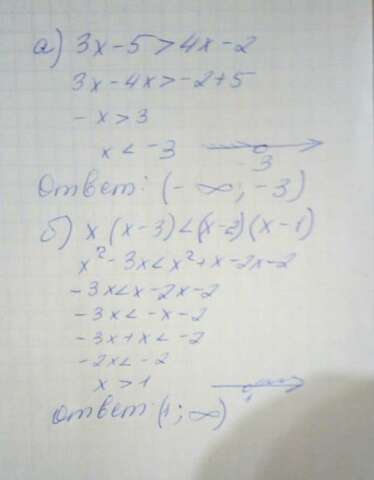 а) 3x-5>4x-2
3x-4x>-2+5
-x>3
x<-3
-3
Ответ: (-∞;-3)
б) x(x-3)<(x-2)(x-1)
x²-3x<x²+x-2x-2
-3x<x-2x-2
-3x<-x-2
-3x+x<-2
-2x<-2
x>1
1
ответ (1;∞)